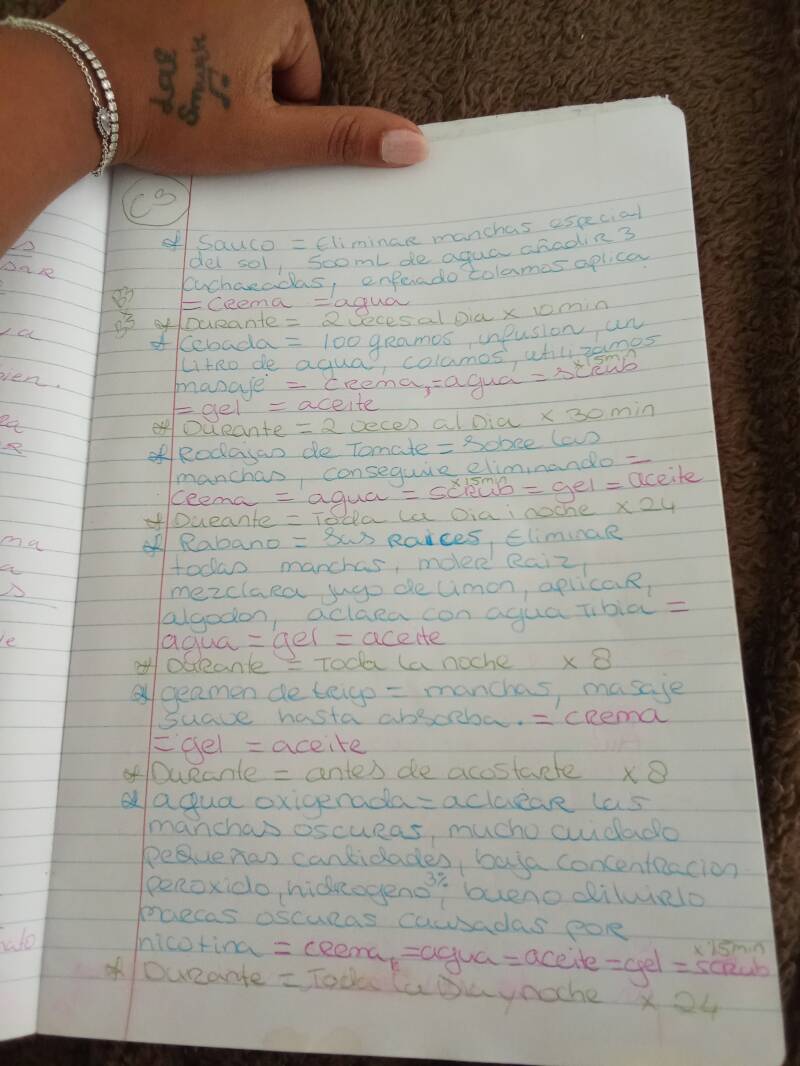 Lae
Smynk
C3
* Sauco = Eliminar manchas especial
del sol, 500 mL de agua añadir 3
cucharadas, enfriado colamos aplica
= crema = agua
* Durante = 2 veces al Dia x 10 min
* Cebada = 100 gramos, infusion, un
litro de agua, colamos, utilizamos
masaje = crema, = agua = scrub x 15min
= gel = aceite
* Durante = 2 veces al Dia x 30 min
* Rodajas de Tomate = Sobre las
manchas, conseguie eliminando =
crema = agua = scrub x 15min = gel = aceite
* Durante = Toda la Dia i noche x 24
* Rabano = Sus Raices, Eliminar
todas manchas, moler Raiz,
mezclara jugo de limon, aplicar,
algodon, aclara con agua Tibia =
agua = gel = aceite
* Durante = Toda la noche x 8
* germen de trigo = manchas, masaje
suave hasta absorba. = crema
= gel = aceite
* Durante = antes de acostarte x 8
* agua oxigenada = aclarar las
manchas oscuras, mucho cuidado
pequeñas cantidades, baja concentracion
peroxido, hidrogeno 3%, bueno diluirlo
marcas oscuras causadas por
nicotina = crema, = agua = aceite = gel = scrub x 15min
* Durante = Toda la Dia y noche x 24